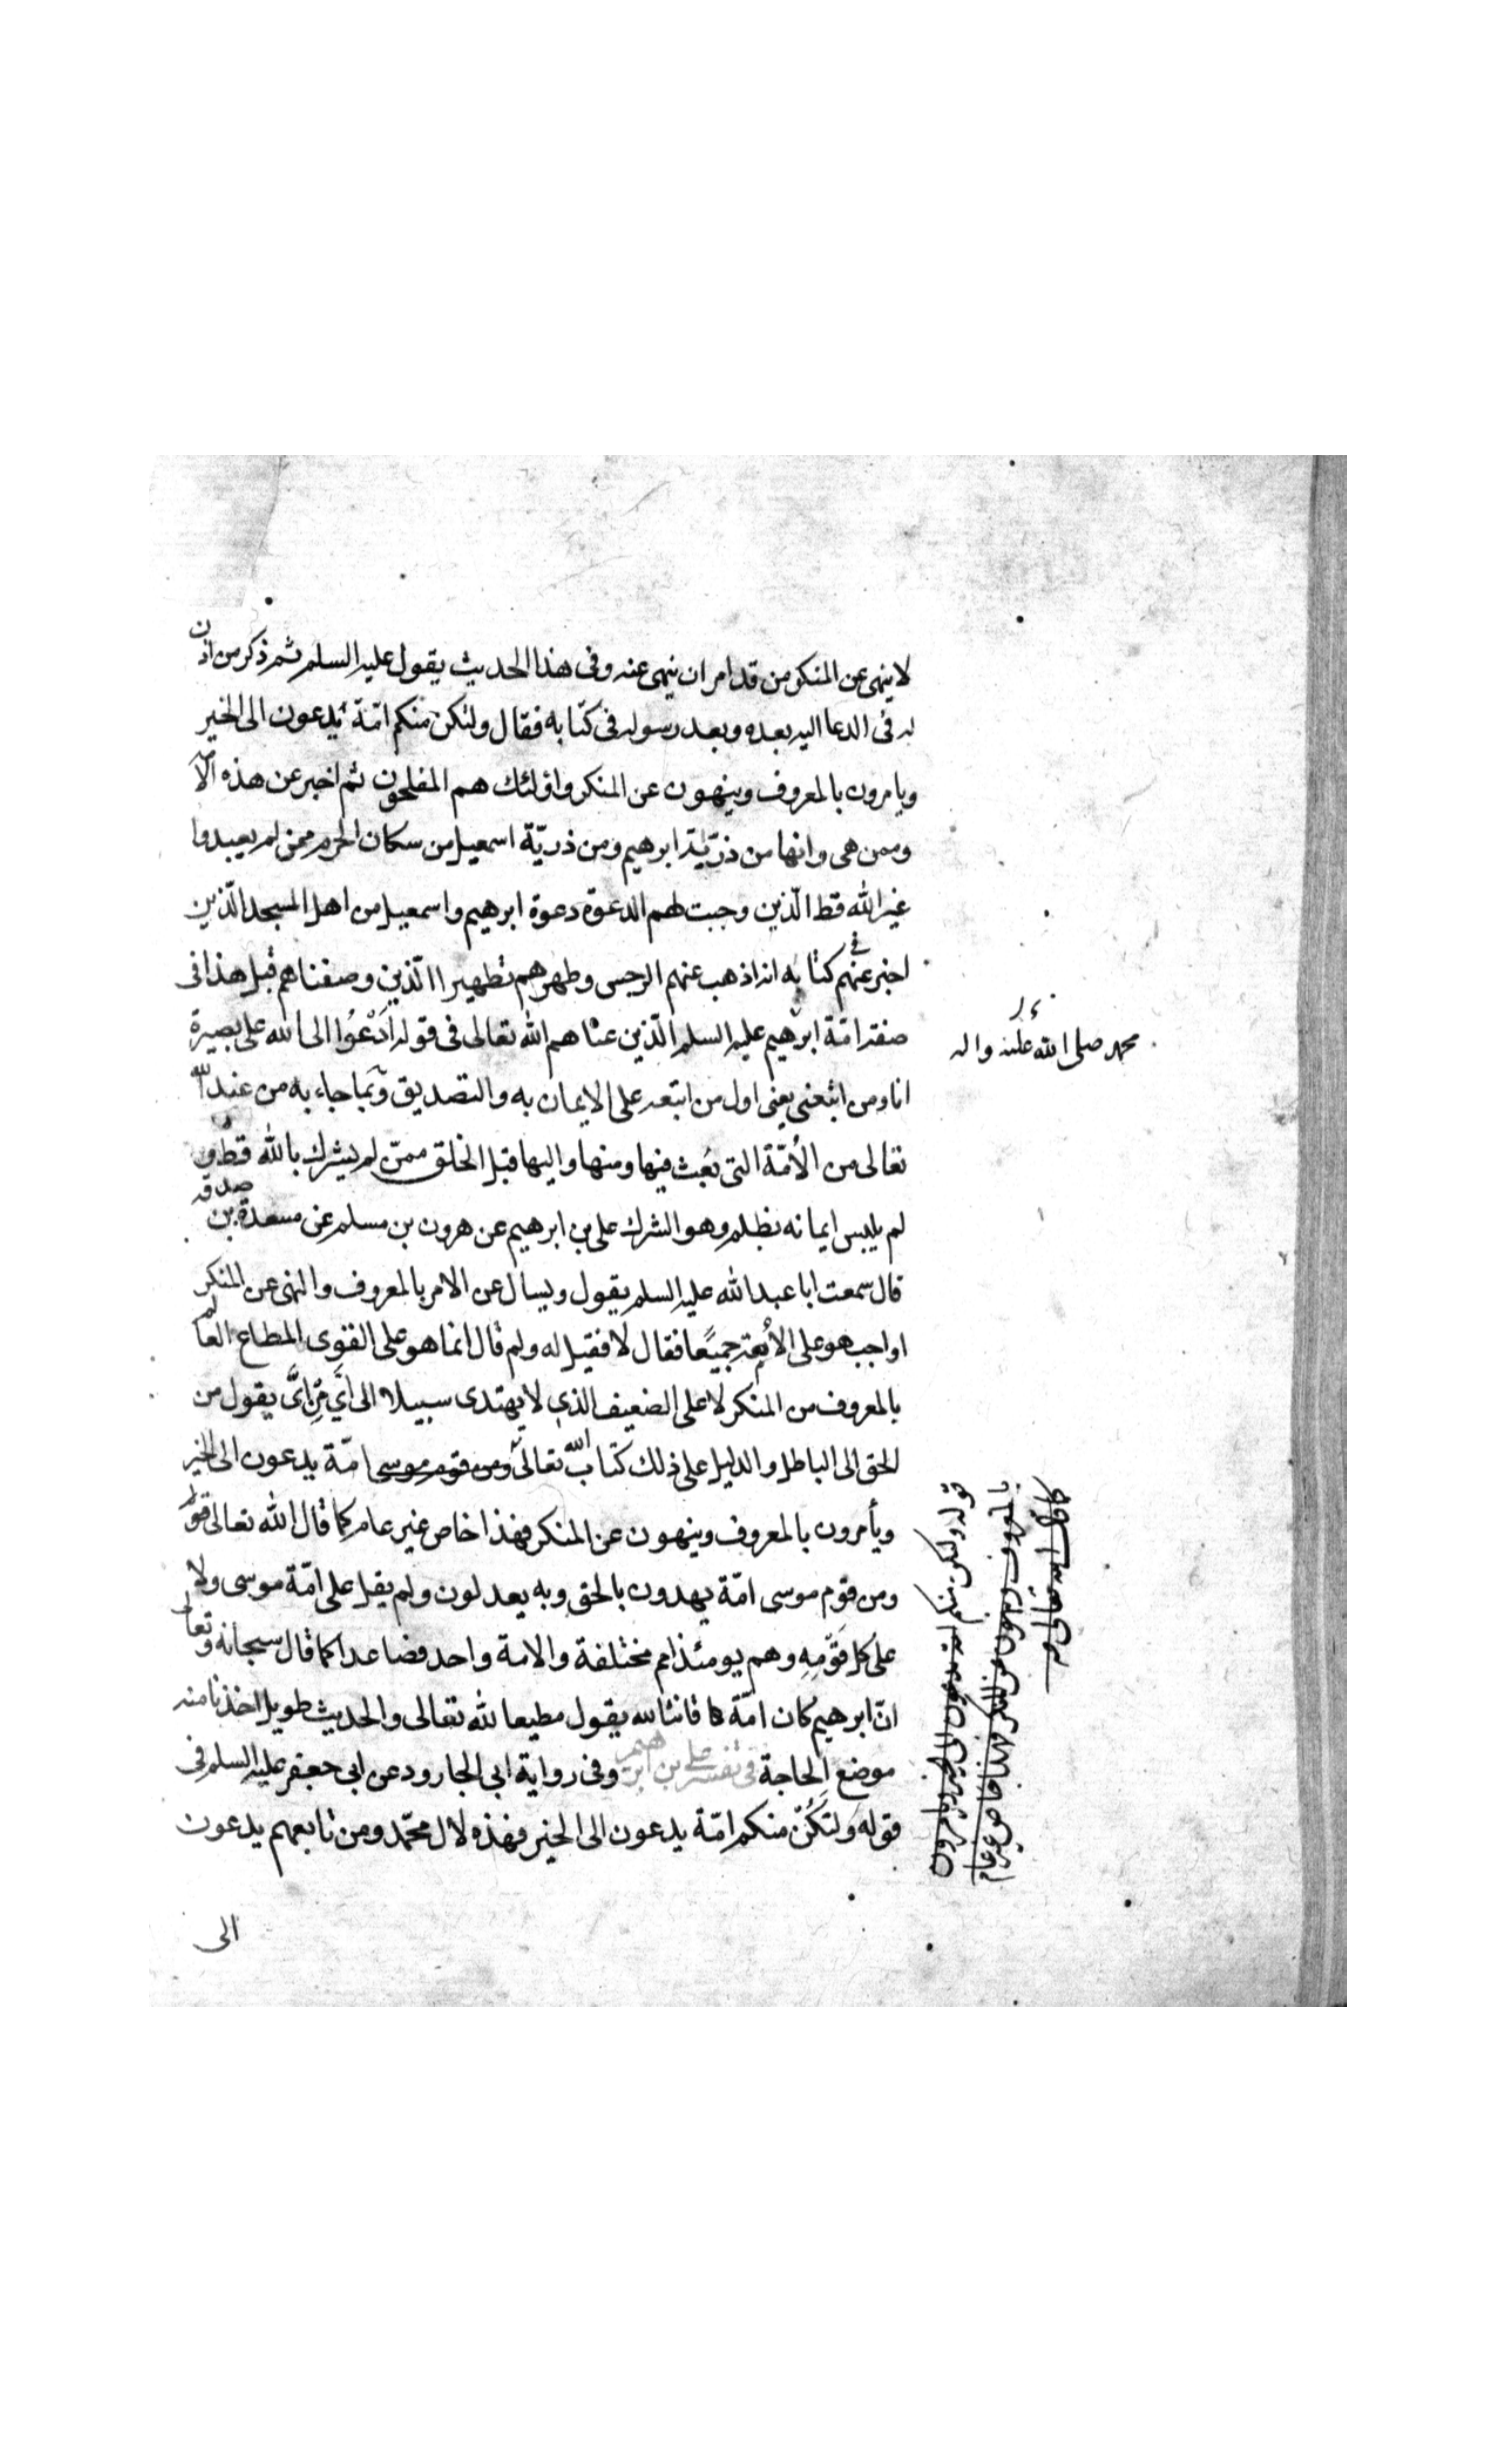 لا ينهى عن المنكر من قد امر ان ينهى عنه وفى هذا الحديث يقول عليه السلم ثم ذكر من اذن
له فى الدعا اليه بعده وبعد رسوله فى كتابه فقال ولتكن منكم امّة يدعون الى الخير
ويامرون بالمعروف وينهون عن المنكر واولئك هم المفلحون ثم اخبر عن هذه الامة
وممن هى وانها من ذرّيّة ابرهيم ومن ذريّة اسمعيل من سكان الحرم ممن لم يعبدوا
غير الله قط الّذين وجبت لهم الدعوة دعوة ابرهيم واسمعيل من اهل المسجد الّذين
اخبر عنهم فى كتابه انه اذهب عنهم الرجس وطهرهم تطهيرا الّذين وصفناهم قبل هذا فى
صفة امّة ابرهيم عليه السلم الّذين عناهم الله تعالى فى قوله اَدْعُوا الى الله على بصيرة
محمد صلى الله عليه واله
انا ومن اتبعنى يعنى اول من اتبعه على الايمان به والتصديق وبما جاء به من عند الله
تعالى من الأمّة التى بُعث فيها ومنها واليها قبل الخلق ممّن لم يشرك بالله قط و
لم يلبس ايمانه بظلم وهو الشرك على بن ابرهيم عن هرون بن مسلم عن مسعدة بن صدقه
قال سمعت ابا عبد الله عليه السلم يقول ويسال عن الامر بالمعروف والنهى عن المنكر
اواجب هو على الامّة جميعًا فقال لا فقيل له ولم قال انما هو على القوى المطاع العالم
بالمعروف من المنكر لا على الضعيف الذى لا يهتدى سبيلا الى اَىٍّ مِن اَىٍّ يقول من
الحق الى الباطل والدليل على ذلك كتاب الله تعالى ومن قوم موسى امّة يدعون الى الخير
ويأمرون بالمعروف وينهون عن المنكر فهذا خاص غير عام كما قال الله تعالى قوله
ومن قوم موسى امّة يهدون بالحق وبه يعدلون ولم يقل على امّة موسى ولا
على كل قَوْمِهِ وهم يومئذ امم مختلفة والامة واحد فصاعدا كما قال سبحانه وتعالى
انّ ابرهيم كان امّة قانتا لله يقول مطيعا لله تعالى والحديث طويل اخذنا منه
موضع الحاجة فى تفسير على بن ابرهيم وفى رواية ابى الجارود عن ابى جعفر عليه السلم فى
قوله وَلتَكُنْ منكم امّة يدعون الى الخير فهذه لال محمّد ومن تابعهم يدعون
الى
قوله ولتكن منكم امة يدعون الى الخير ويامرون
بالمعروف وينهون عن المنكر فهذا خاص غير عام
كما قال الله تعالى